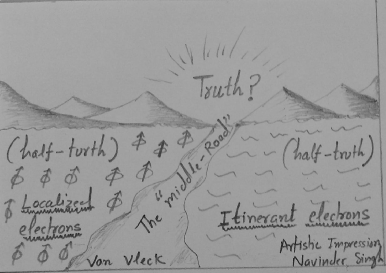 Truth?
(half-turth)
Localized
electrons
The "middle-Road"
Van Vleck
(half-truth)
Itinerant electrons
Artistic Impression
Navinder Singh